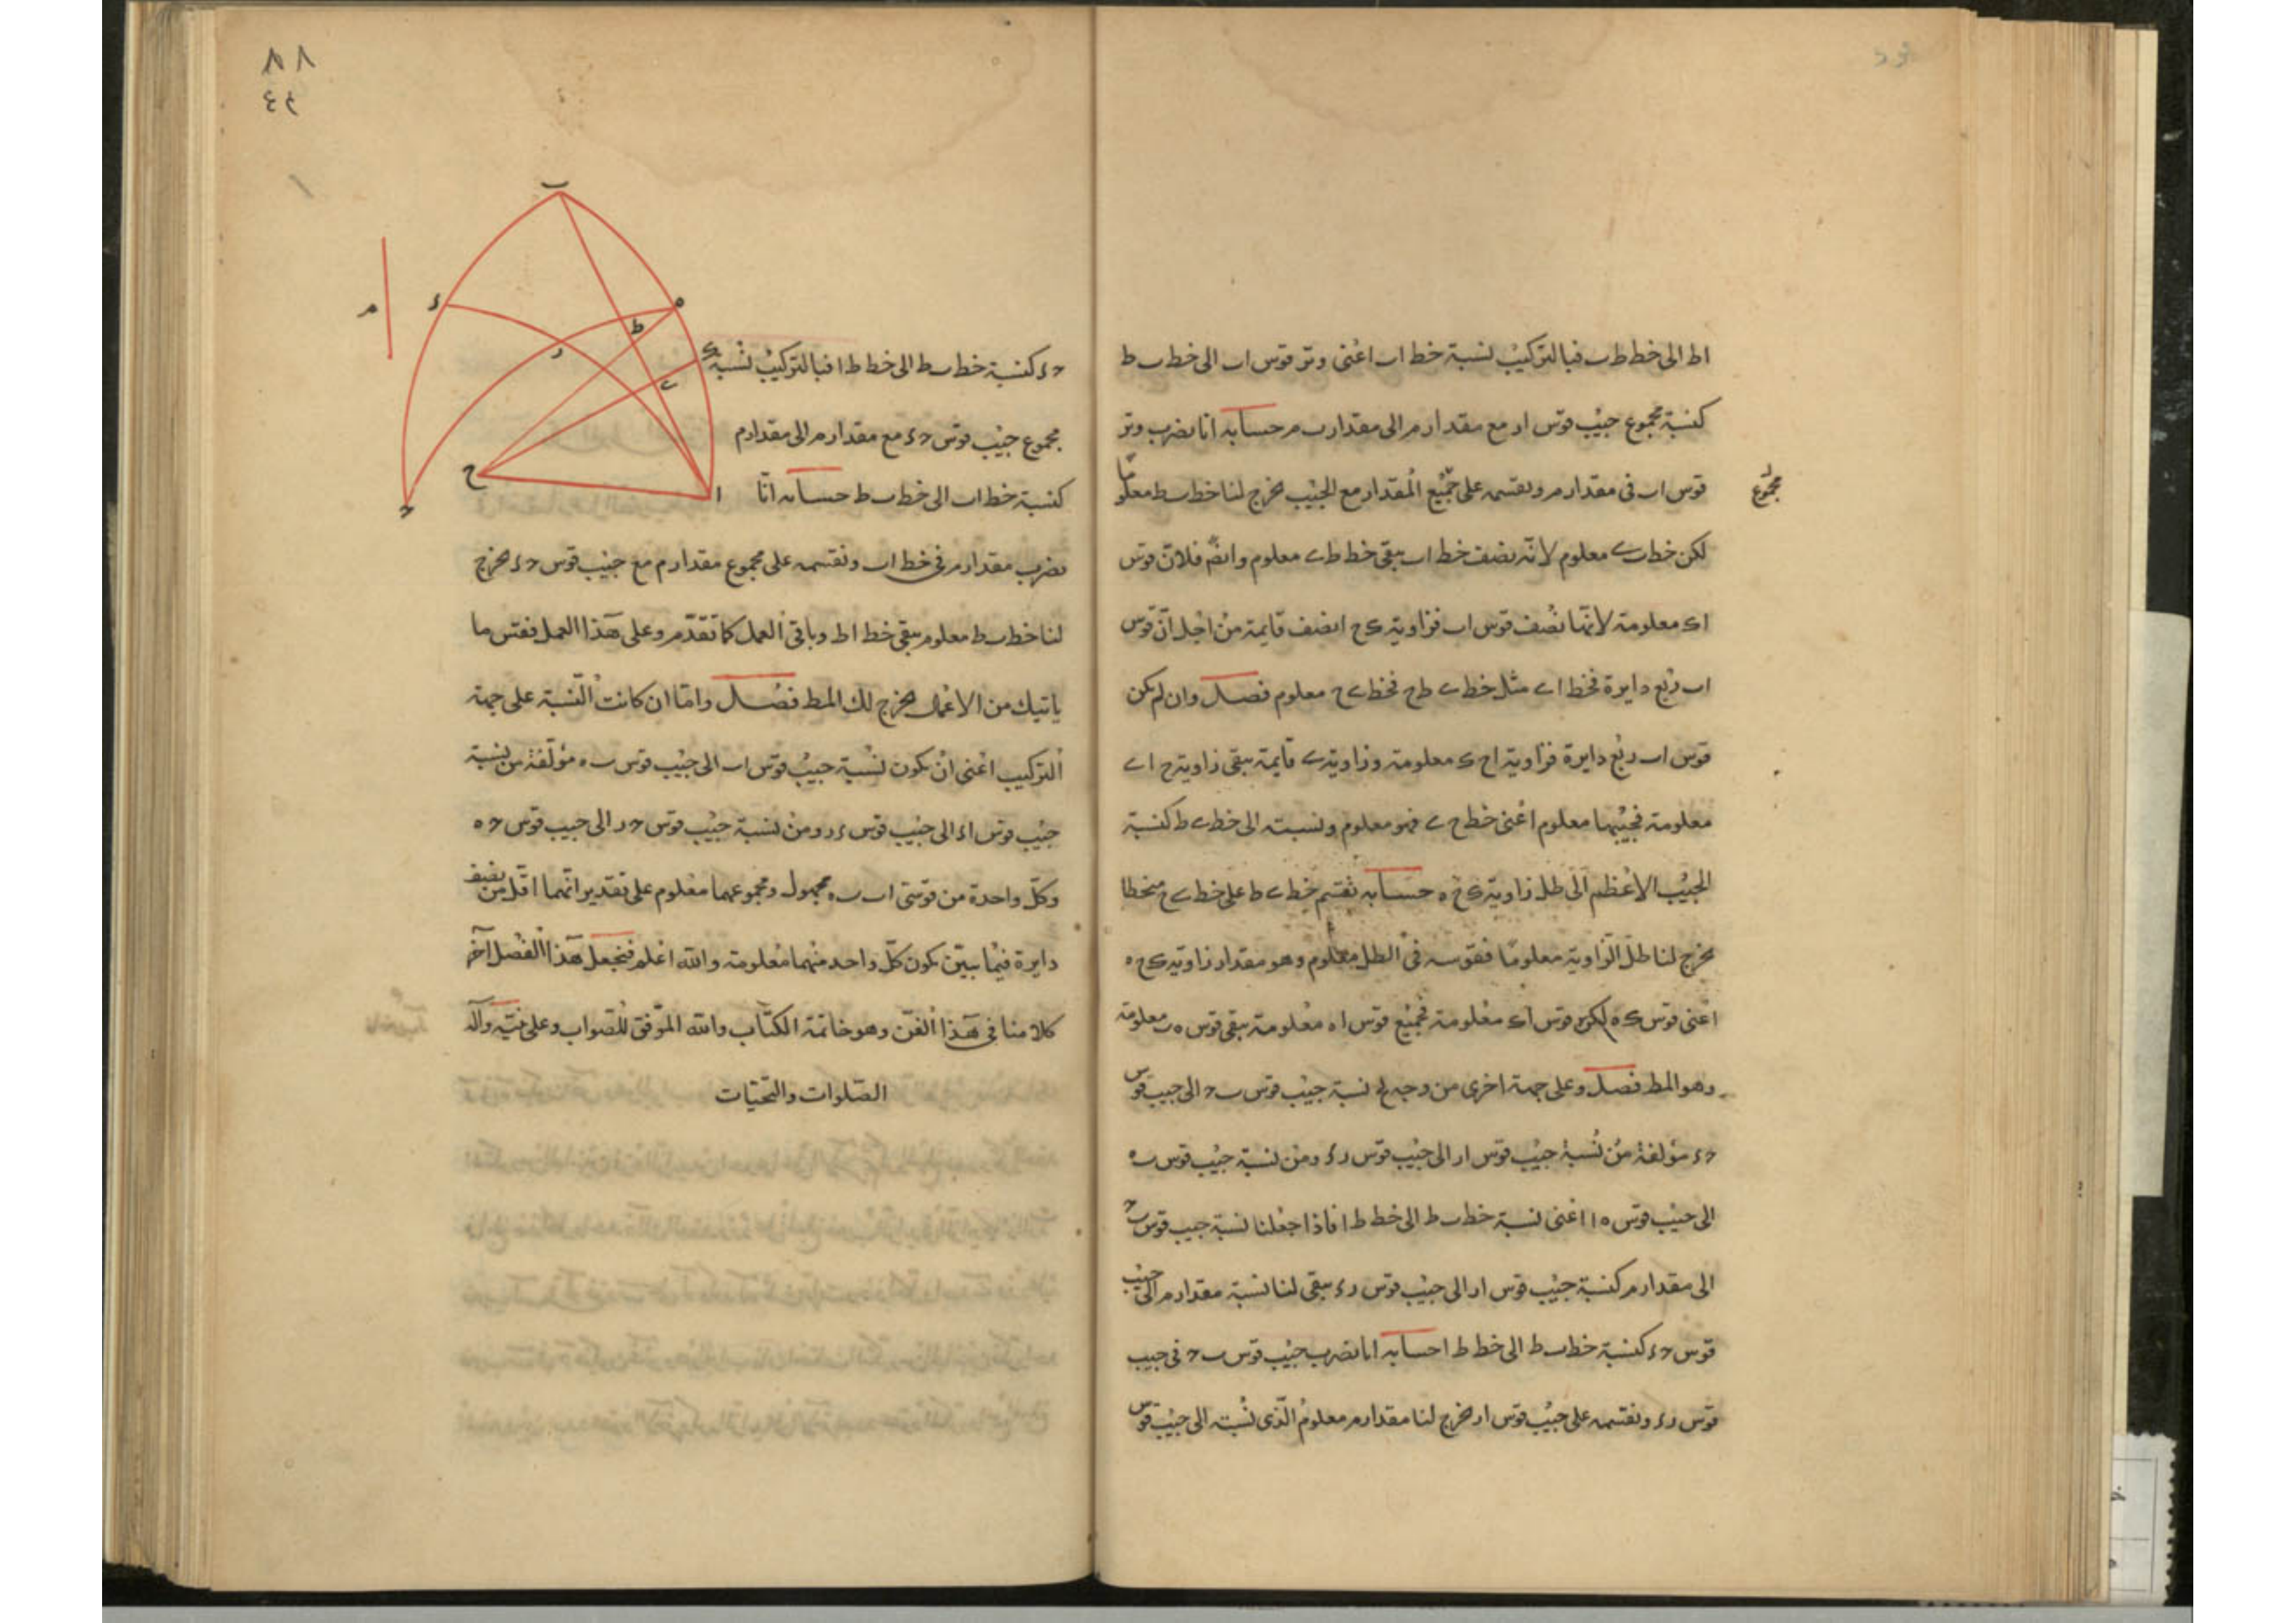 اط الى خط ط ب فبالتركيب نسبة خط اب اعنى وتر قوس اب الى خط ب ط
كنسبة مجموع جيب قوس ار مع مقدار م الى مقدار م حسابه انا نضرب وتر
قوس اب فى مقدار م ونقسمه على جميع المقدار مع الجيب يخرج لنا خط ب ط معلوما
مجموع
لكن خط ب ى معلوم لانه نصف خط اب يبقى خط ط ى معلوم وايضا فلان قوس
اك معلومة لانها نصف قوس اب فزاوية ك ح ا نصف قايمة من اجل ان قوس
اب ربع دايرة فخط ا ى مثل خط ى ح فخط ى ح معلوم فصل وان لم يكن
قوس اب ربع دايرة فزاوية ا ح ك معلومة وزاوية ى قايمة يبقى زاوية ح ا ى
معلومة فجيبها معلوم اعنى خط ح ى فهو معلوم ونسبته الى خط ى ط كنسبة
الجيب الاعظم الى ظل زاوية ك ح ه حسابه نقسم خط ى ط على خط ى ح منحطا
يخرج لنا ظل الزاوية معلوما فقوسه فى الظل معلوم وهو مقدار زاوية ك ح ه
اعنى قوس ك ه لكن قوس اك معلومة فجميع قوس ا ه معلومة يبقى قوس ه ب معلومة
وهو المط فصل وعلى جهة اخرى من وجه نسبة جيب قوس ب ح الى جيب قوس
ح د مؤلفة من نسبة جيب قوس ار الى جيب قوس ر د ومن نسبة جيب قوس ب ه
الى جيب قوس ه ا اعنى نسبة خط ب ط الى خط ط ا فاذا جعلنا نسبة جيب قوس ب ح
الى مقدار م كنسبة جيب قوس ار الى جيب قوس ر د يبقى لنا نسبة مقدار م الى جيب
قوس ح د كنسبة خط ب ط الى خط ط ا حسابه انا نضرب جيب قوس ب ح فى جيب
قوس ر د ونقسمه على جيب قوس ار يخرج لنا مقدار م معلوم الذى نسبته الى جيب قوس
٨٨
٤٤
ب
د
ه
م
ط
ر
ك
ى
ح
ا
ح
ح د كنسبة خط ب ط الى خط ط ا فبالتركيب نسبة
مجموع جيب قوس ح د مع مقدار م الى مقدار م
كنسبة خط اب الى خط ب ط حسابه انا
نضرب مقدار م فى خط اب ونقسمه على مجموع مقدار م مع جيب قوس ح د يخرج
لنا خط ب ط معلوم يبقى خط اط وباقى العمل كما تقدم وعلى هذا العمل فقس ما
ياتيك من الاعمال يخرج لك المط فصل واما ان كانت النسبة على جهة
التركيب اعنى ان يكون نسبة جيب قوس اب الى جيب قوس ب ه مؤلفة من نسبة
جيب قوس ا د الى جيب قوس د ر ومن نسبة جيب قوس ح ر الى جيب قوس ح ه
وكل واحدة من قوسى اب ب ه مجهول ومجموعهما معلوم على تقدير انهما اقل من نصف
دايرة فيما بين يكون كل واحد منهما معلومة والله اعلم فنجعل هذا الفصل آخر
كلامنا فى هذا الفن وهو خاتمة الكتاب والله الموفق للصواب وعلى نبيه وآله
الصلوات والتحيات